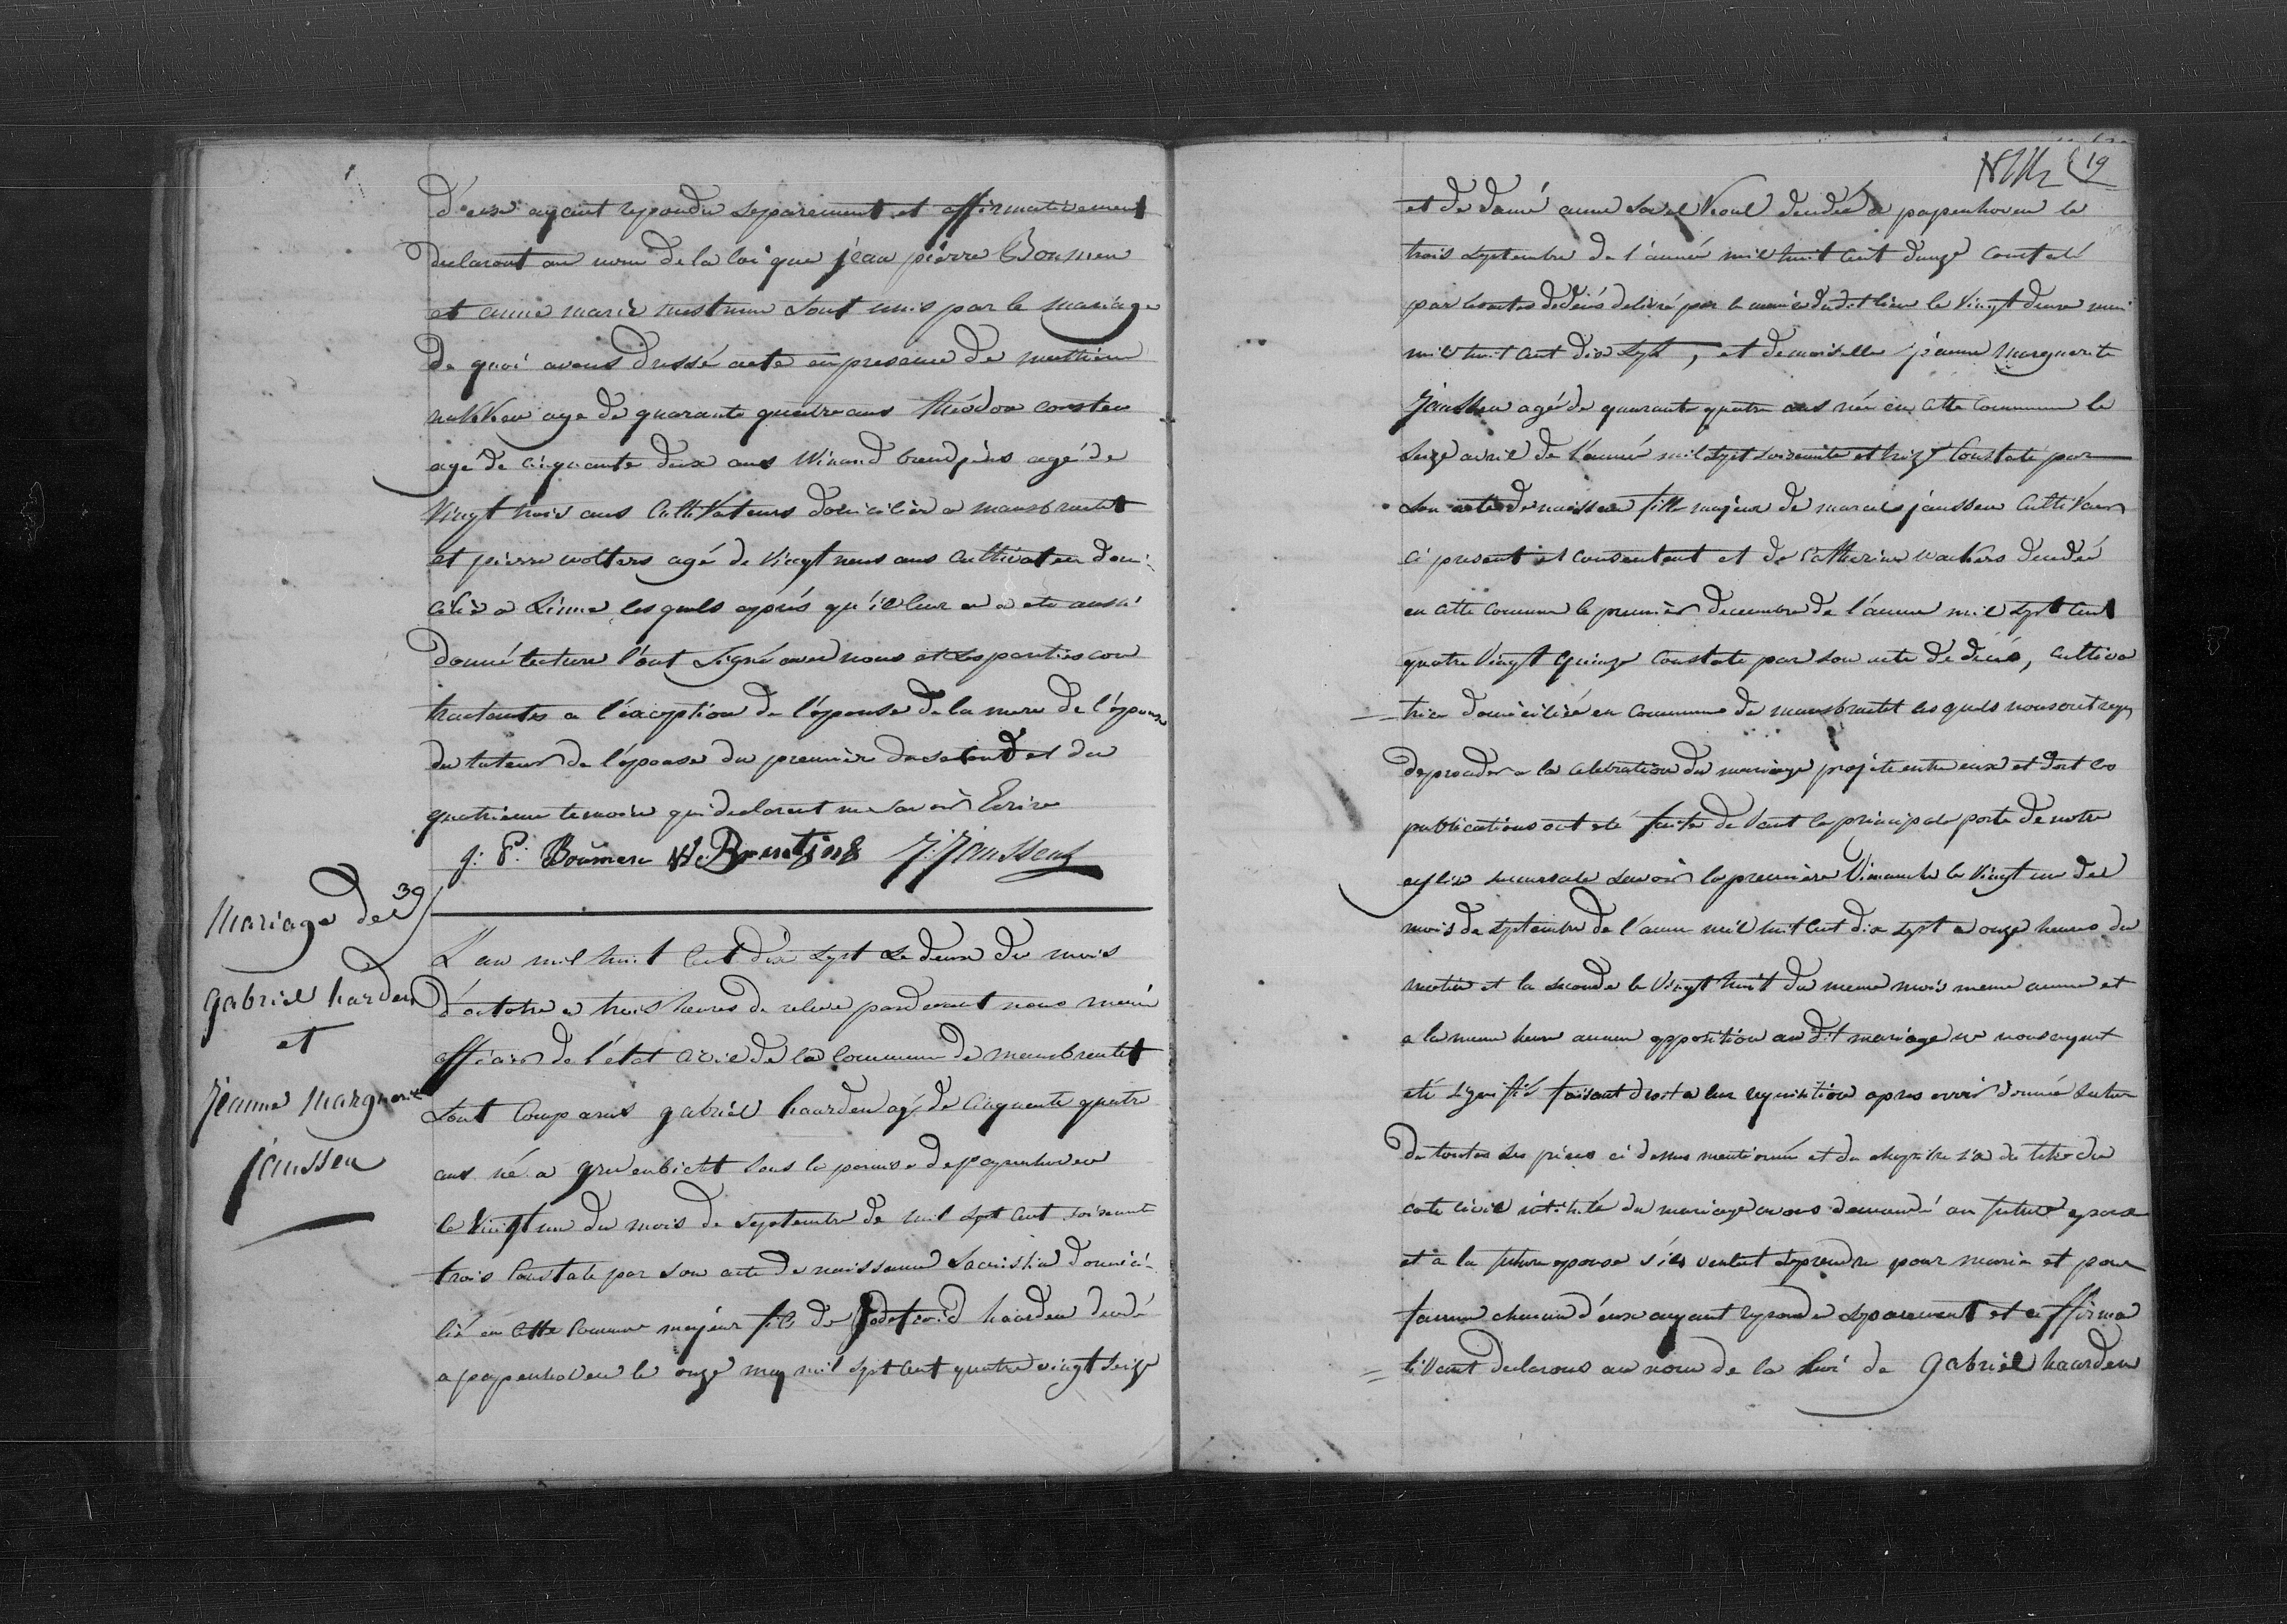 d'eux ayant repondu separement et affirmativement
declaront au nom de la loi que jean pierre Boumen
et anne marie mestrum sont unis par le mariage
de quoi avons dressé acte en presence de mathieu
age de quarante quatre ans théodor corsten
agé de cinquante deux ans Winand agé de
vingt trois ans Cultivateurs domicilié a mansbracht
et pierre wolters agé de vingt neus ans Cultivateur domi
cilié a Linne lesquels après qu'il leur en a ete aussi
donné lecture l'ont signé avec nous et les parties con
tractantes a l'exception de l'épouse de la mere de l'épouse
du tuteur de l'épouse du premier du second et du
quatrieme temoin qui declarent ne savoir Ecrire
j: P: Boumen W: J: Janssens
39
Mariage de
gabriel harden
et
Jeanne Marguerite
janssen
L'an mil huit cent dix sept le deux du mois
d'octobre a trois heures de releve pardevant nous maire
officier de l'état civil de la Commune de mansbrachtet
sont Comparus gabriel haarden agé de Cinquante quatre
ans né a grevenbicht sous la paroisse de papenhoven
le vingt un du mois de septembre de mil sept cent soixante
trois Constate par son acte de naissance sacristin domici
lié en cette Commune majeur fils de haarden decedé
a papenhoven le onze may mil sept cent quatre vingt seize
19
et de damé anne decedée a papenhoven le
trois septembre de l'année mil huit cent constaté
par les actes de décés delivré par le maire dudit lieu le Vingt deux
mil huit cent dix sept, et demoiselle jeanne Marguerite
Janssen agé de quarante quatre ans née en cette Commune le
seize avril de l'anné mil sept soixante et treize Constate par
son acte de naissance fille majeur de marcel janssen Cultivateur
ci present et consentent et de Catherine wackers decedée
en cette commune le premier decembre de l'anne mil sept Cent
quatre Vingt quinze Constate par son acte de décés, Cultiva
trice domiciliée en Commune de mansbrachtet lesquels nous ont requis
de proceder a la celebration du mariage projeté entre eux et dont les
publications ont eté faite devant la principale porte de notre
eglise succursale savoir la première Dimanche le Vingt un del
mois de septembre de l'anne mil huit Cent dix sept a onze heures du
matin et la seconde le Vingt huit du meme mois meme anne et
a la meme heure aucun opposition au dit mariage ne nous ayent
eté signifié faisant droit a leur requisition apres avoir donné lecture
de toutes les pièces ci dessus mentionné et du chapitre six du titre du
code civil intitulé du mariage avons demandé au futur epoux
et à la future epouse s'ils veulent se prendre pour marie et pour
famme chacun d'eux ayant repondu separement et affirma
tivant declarons au nom de la loi de gabriel haarden